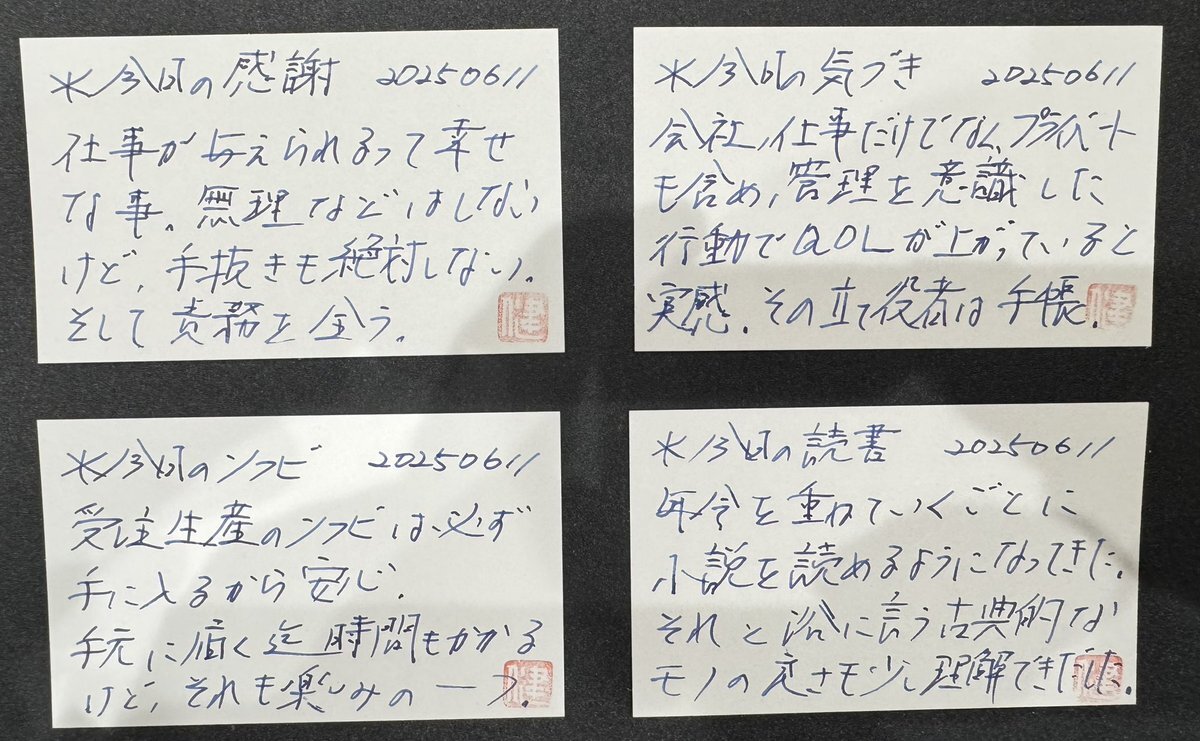 ※今日の感謝 20250611
仕事が与えられるって幸せ
な事。無理などはしない
けど、手抜きも絶対しない。
そして責務を全う。
健
※今日の気づき 20250611
会社、仕事だけでなく、プライベート
も含め、管理を意識した
行動でQOLが上がっていると
実感。その立て役者は手帳。
健
※今日のソフビ 20250611
受注生産のソフビは必ず
手に入るから安心。
手元に届く迄時間もかかる
けど、それも楽しみの一つ。
健
※今日の読書 20250611
年令を重ねていくごとに
小説を読めるようになってきた。
それと俗に言う古典的な
モノの良さも少し理解できだした。
健